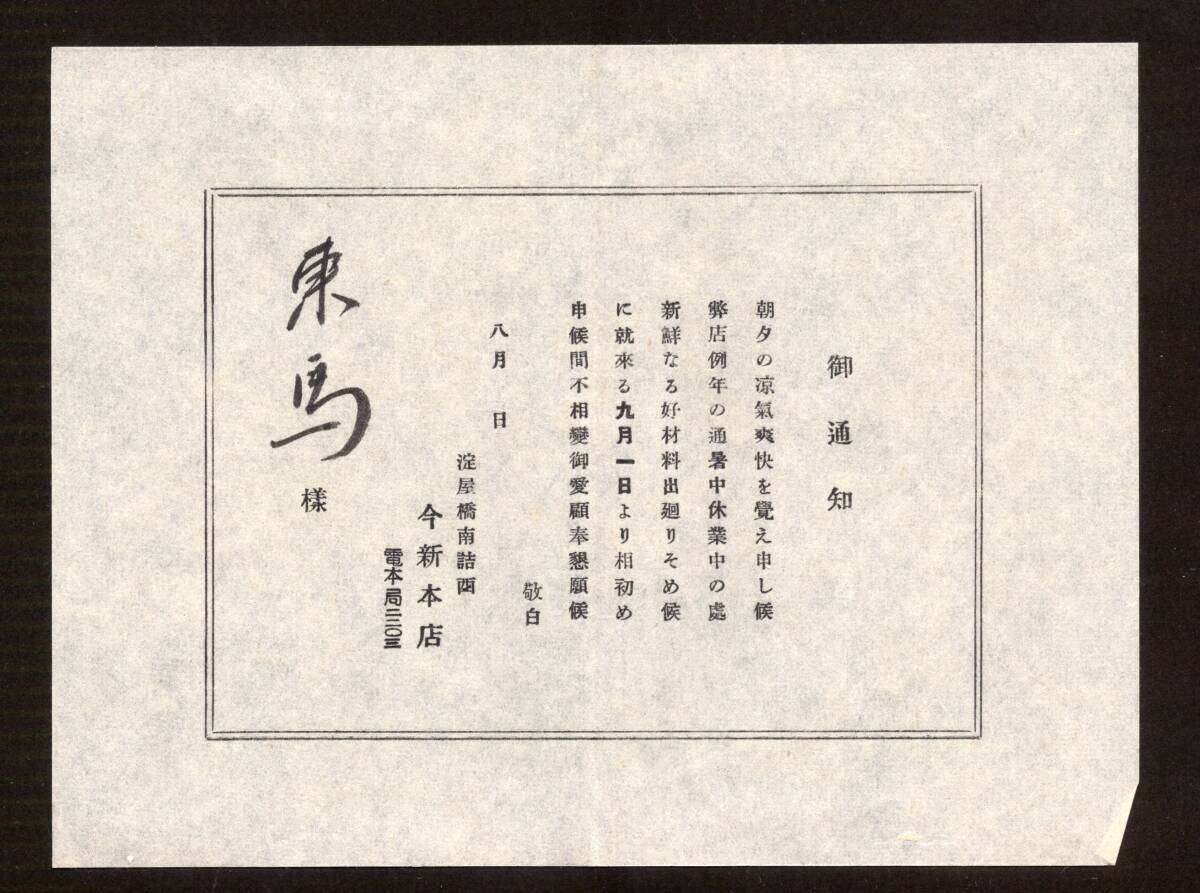 御通知
朝夕の凉氣爽快を覺え申し候
弊店例年の通暑中休業中の處
新鮮なる好材料出廻りそめ候
に就來る九月一日より相初め
申候間不相變御愛顧奉懇願候
敬白
八月　日
淀屋橋南詰西
今新本店
電本局二二〇三
東馬様